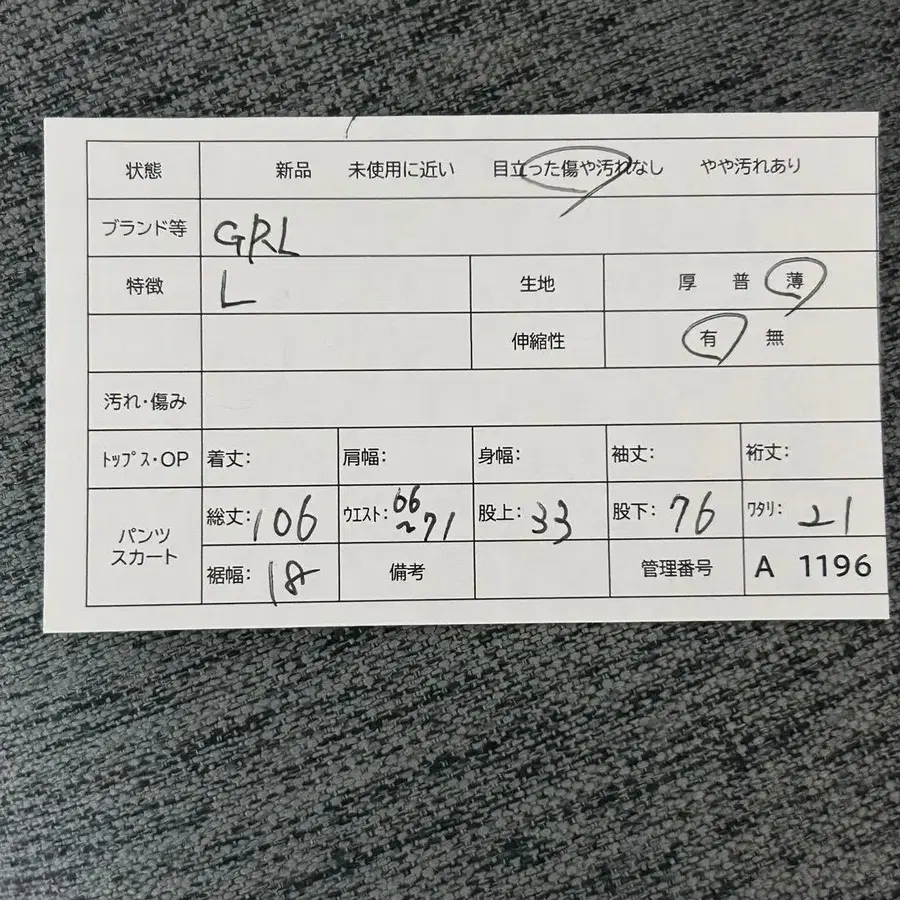 状態 新品 未使用に近い 目立った傷や汚れなし やや汚れあり
ブランド等 GRL
特徴 L 生地 厚 普 薄
伸縮性 有 無
汚れ・傷み
ﾄｯﾌﾟｽ・OP 着丈: 肩幅: 身幅: 袖丈: 裄丈:
パンツ
スカート
総丈: 106 ｳｴｽﾄ: 66
~71 股上: 33 股下: 76 ﾜﾀﾘ: 21
裾幅: 18 備考 管理番号 A 1196